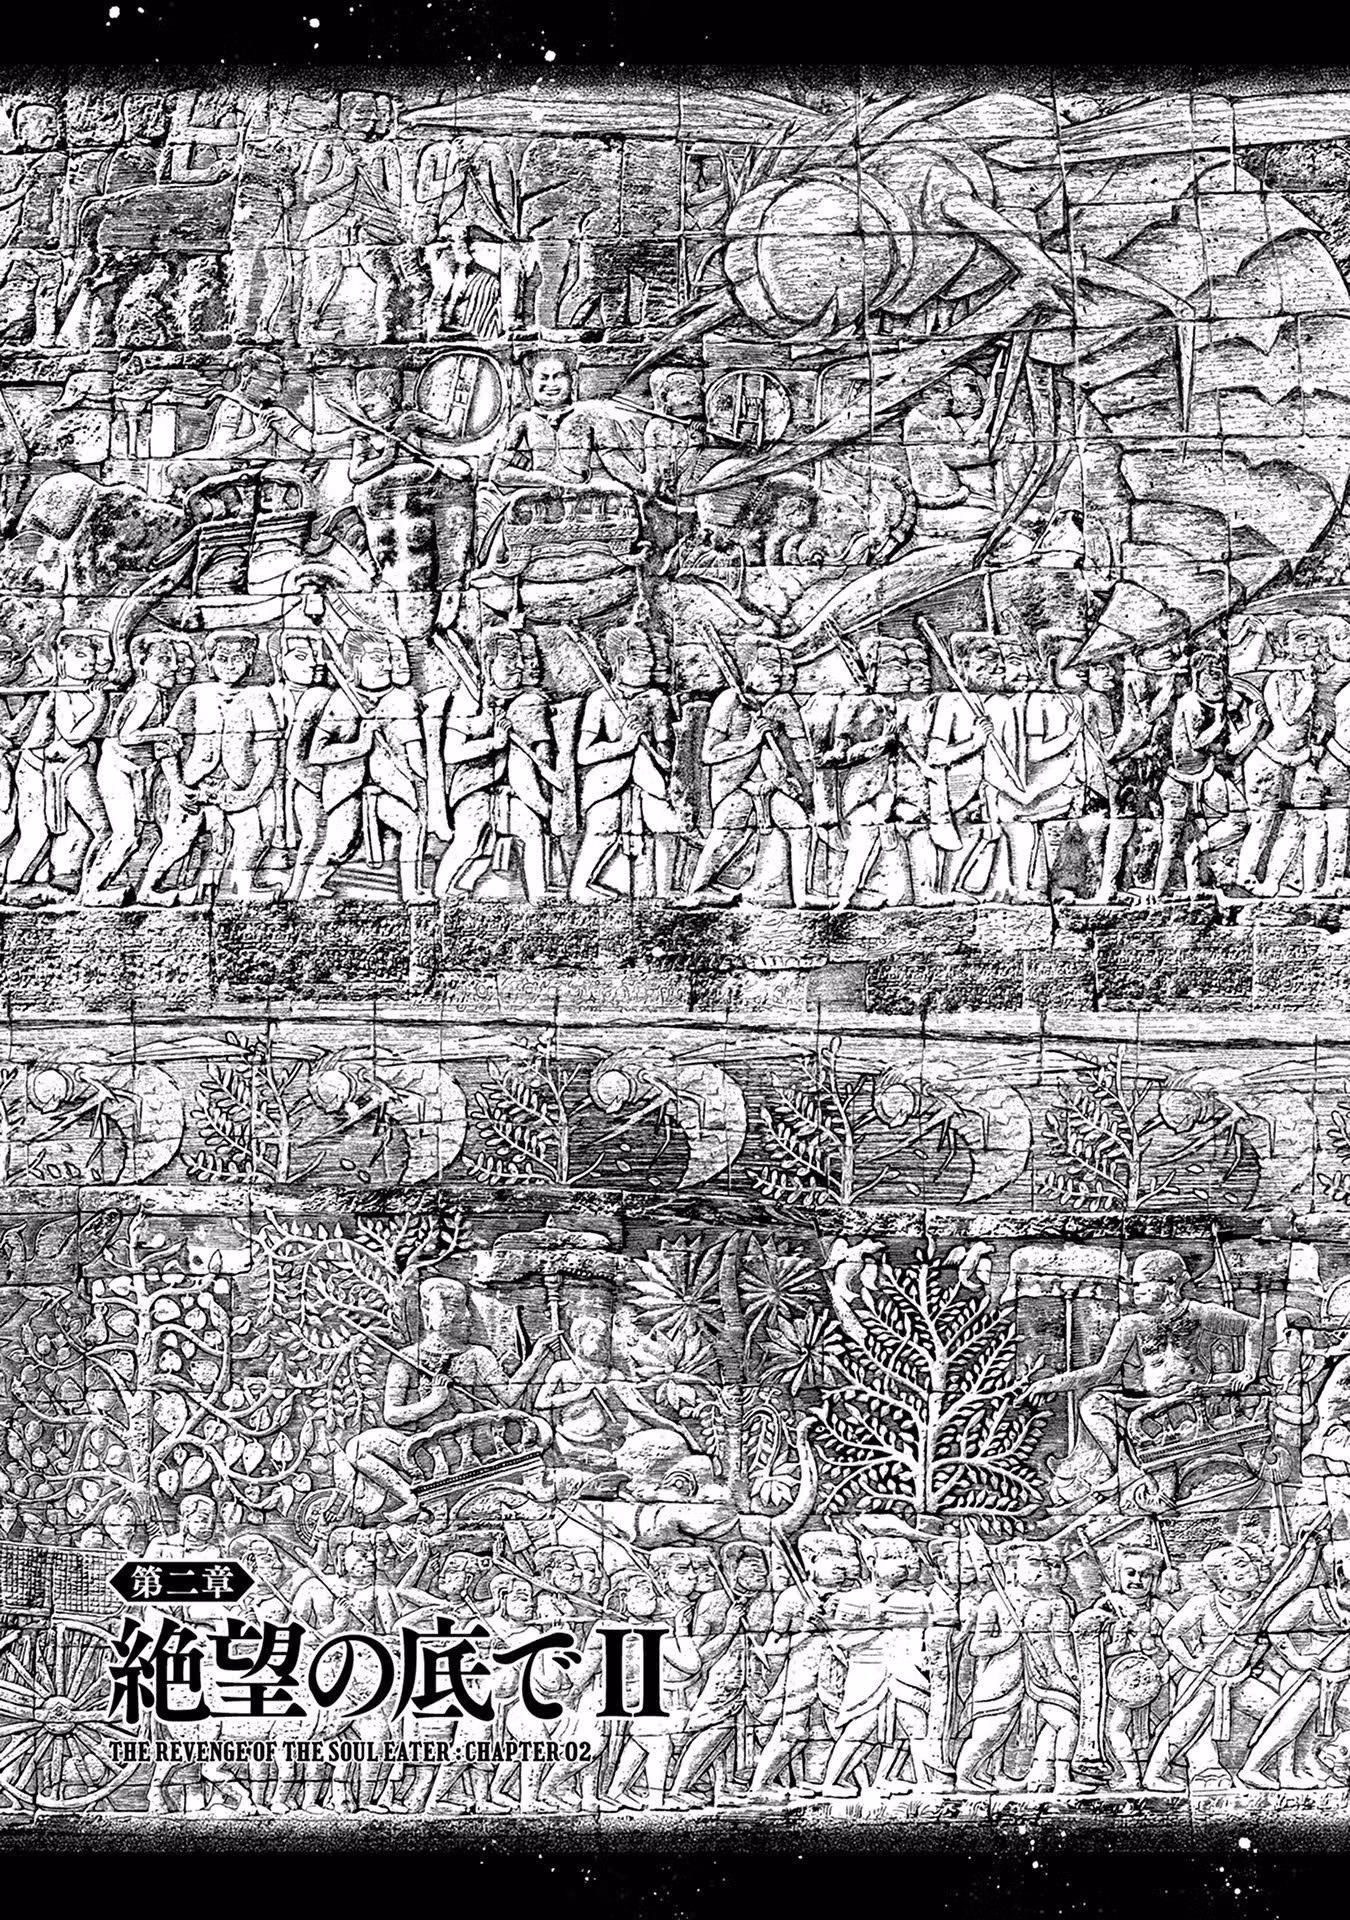 第二章
絶望の底でⅡ
THE REVENGE OF THE SOUL EATER : CHAPTER 02